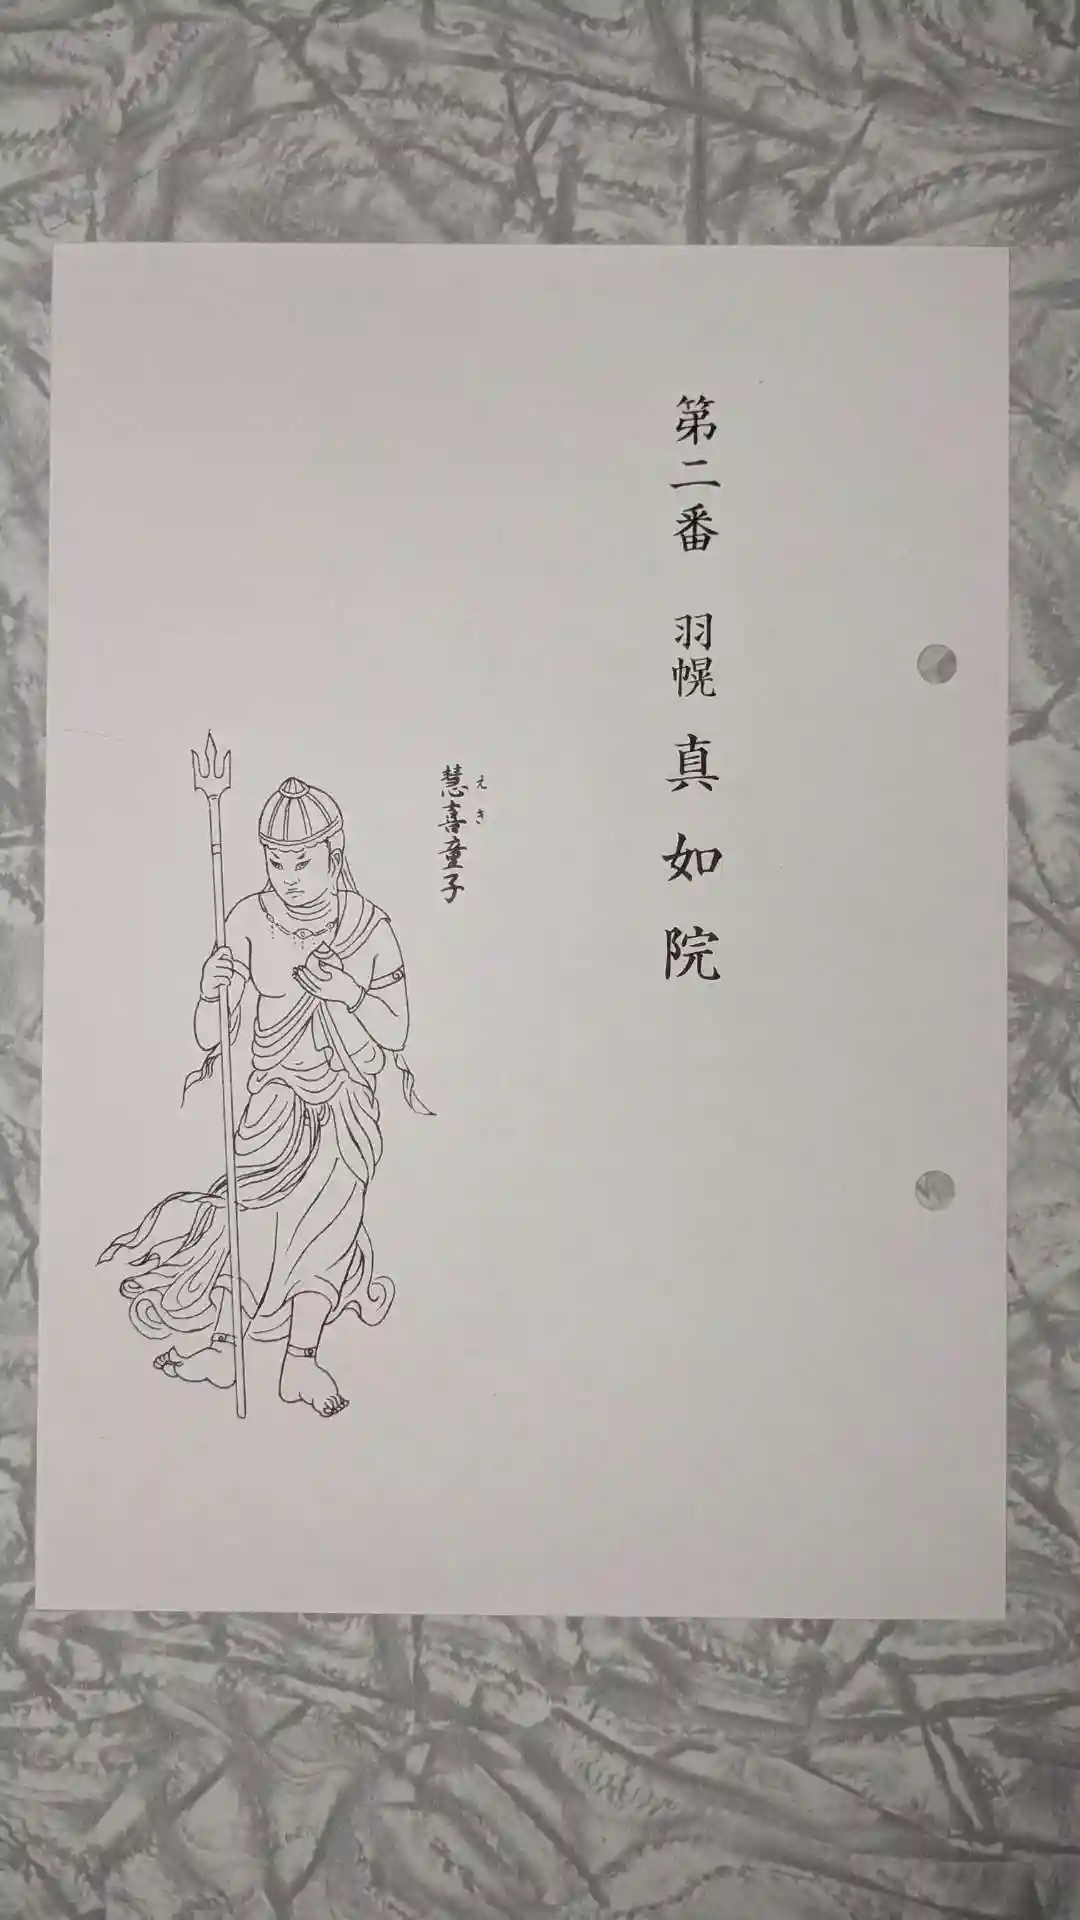 第二番 羽幌 真如院
慧喜童子
えき